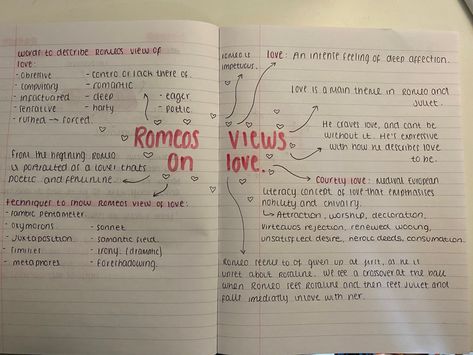 words to describe Romeos view of
love:
- objective - control or lack there of.
- compulsary - romantic
- infactuated - deep - eager
- tentative - hasty - poetic.
- rushed → forced.
From the beginning Romeo
is portrayed as a lover thats
poetic and feminine.
techniques to show Romeos view of love:
- iambic pentameter
- oxymorons - sonnet
- juxtaposition - semantic field.
- similies - irony (dramatic)
- metaphores - foreshadowing.
ROMEOS VIEWS
ON love.
Romeo is
impetuous.
love: An intense feeling of deep affection.
love is a main theme in Romeo and
Juliet.
He craves love, and cant be
without it. He's expressive
with how he describes love
to be.
Courtly love: Medival European
literacy concept of love that emphasises
nobility and chivalry.
↳ Attraction, worship, declaration,
virteauos rejection, renewed wooing,
unsatisfied desire, heroic deeds, consumation.
Romeo seems to of given up at first, as he is
upset about rosaline. We see a crossover at the ball
when Romeo sees Rosaline and then sees Juliet and
falls imediatly in love with her.